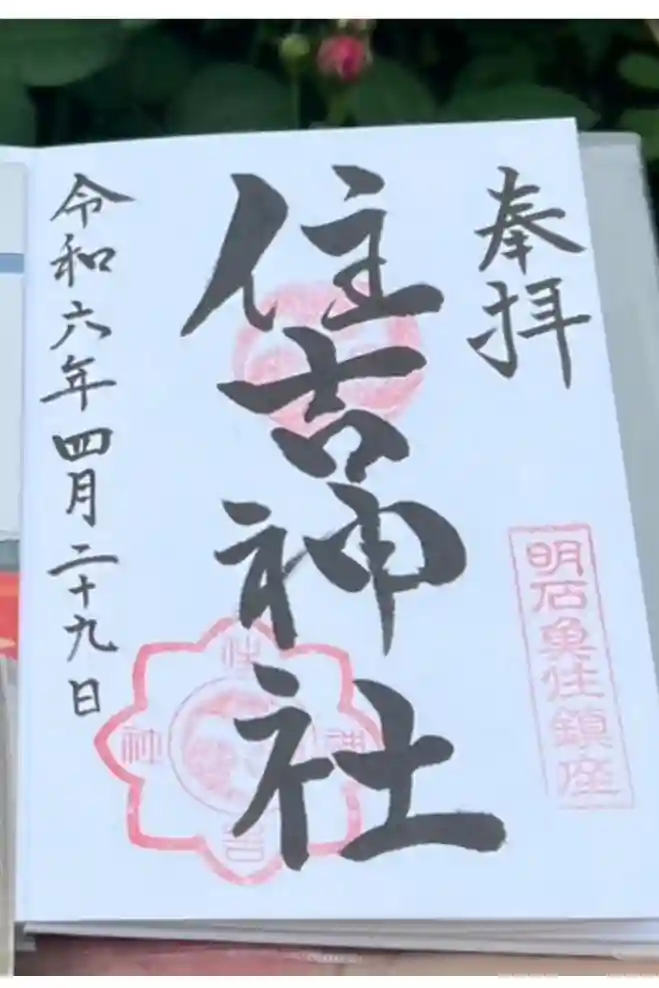 奉拝
明石魚住鎮座
住吉神社
令和六年四月二十九日
住吉神社